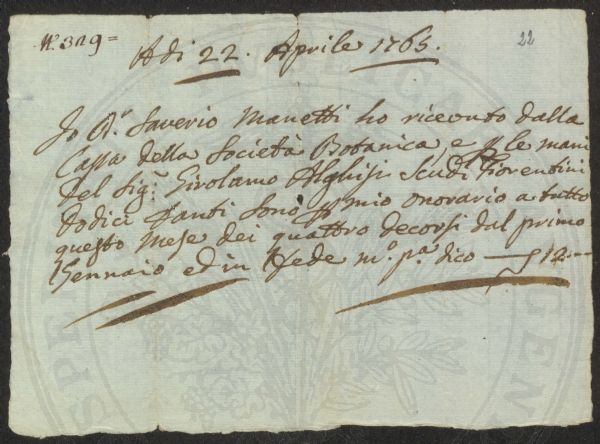 N.° 329=
22
Adi 22. Aprile 1765.
Io D.r Saverio Manetti ho ricevuto dalla
Cassa della Società Botanica, e p le mani
del Sig.r Girolamo Alghisi Scudi Fiorentini
dodici q̃anti sono p mio onorario a tutto
questo Mese dei quattro decorsi dal primo
Gennaio ed in fede m.° p.a dico — 12.—